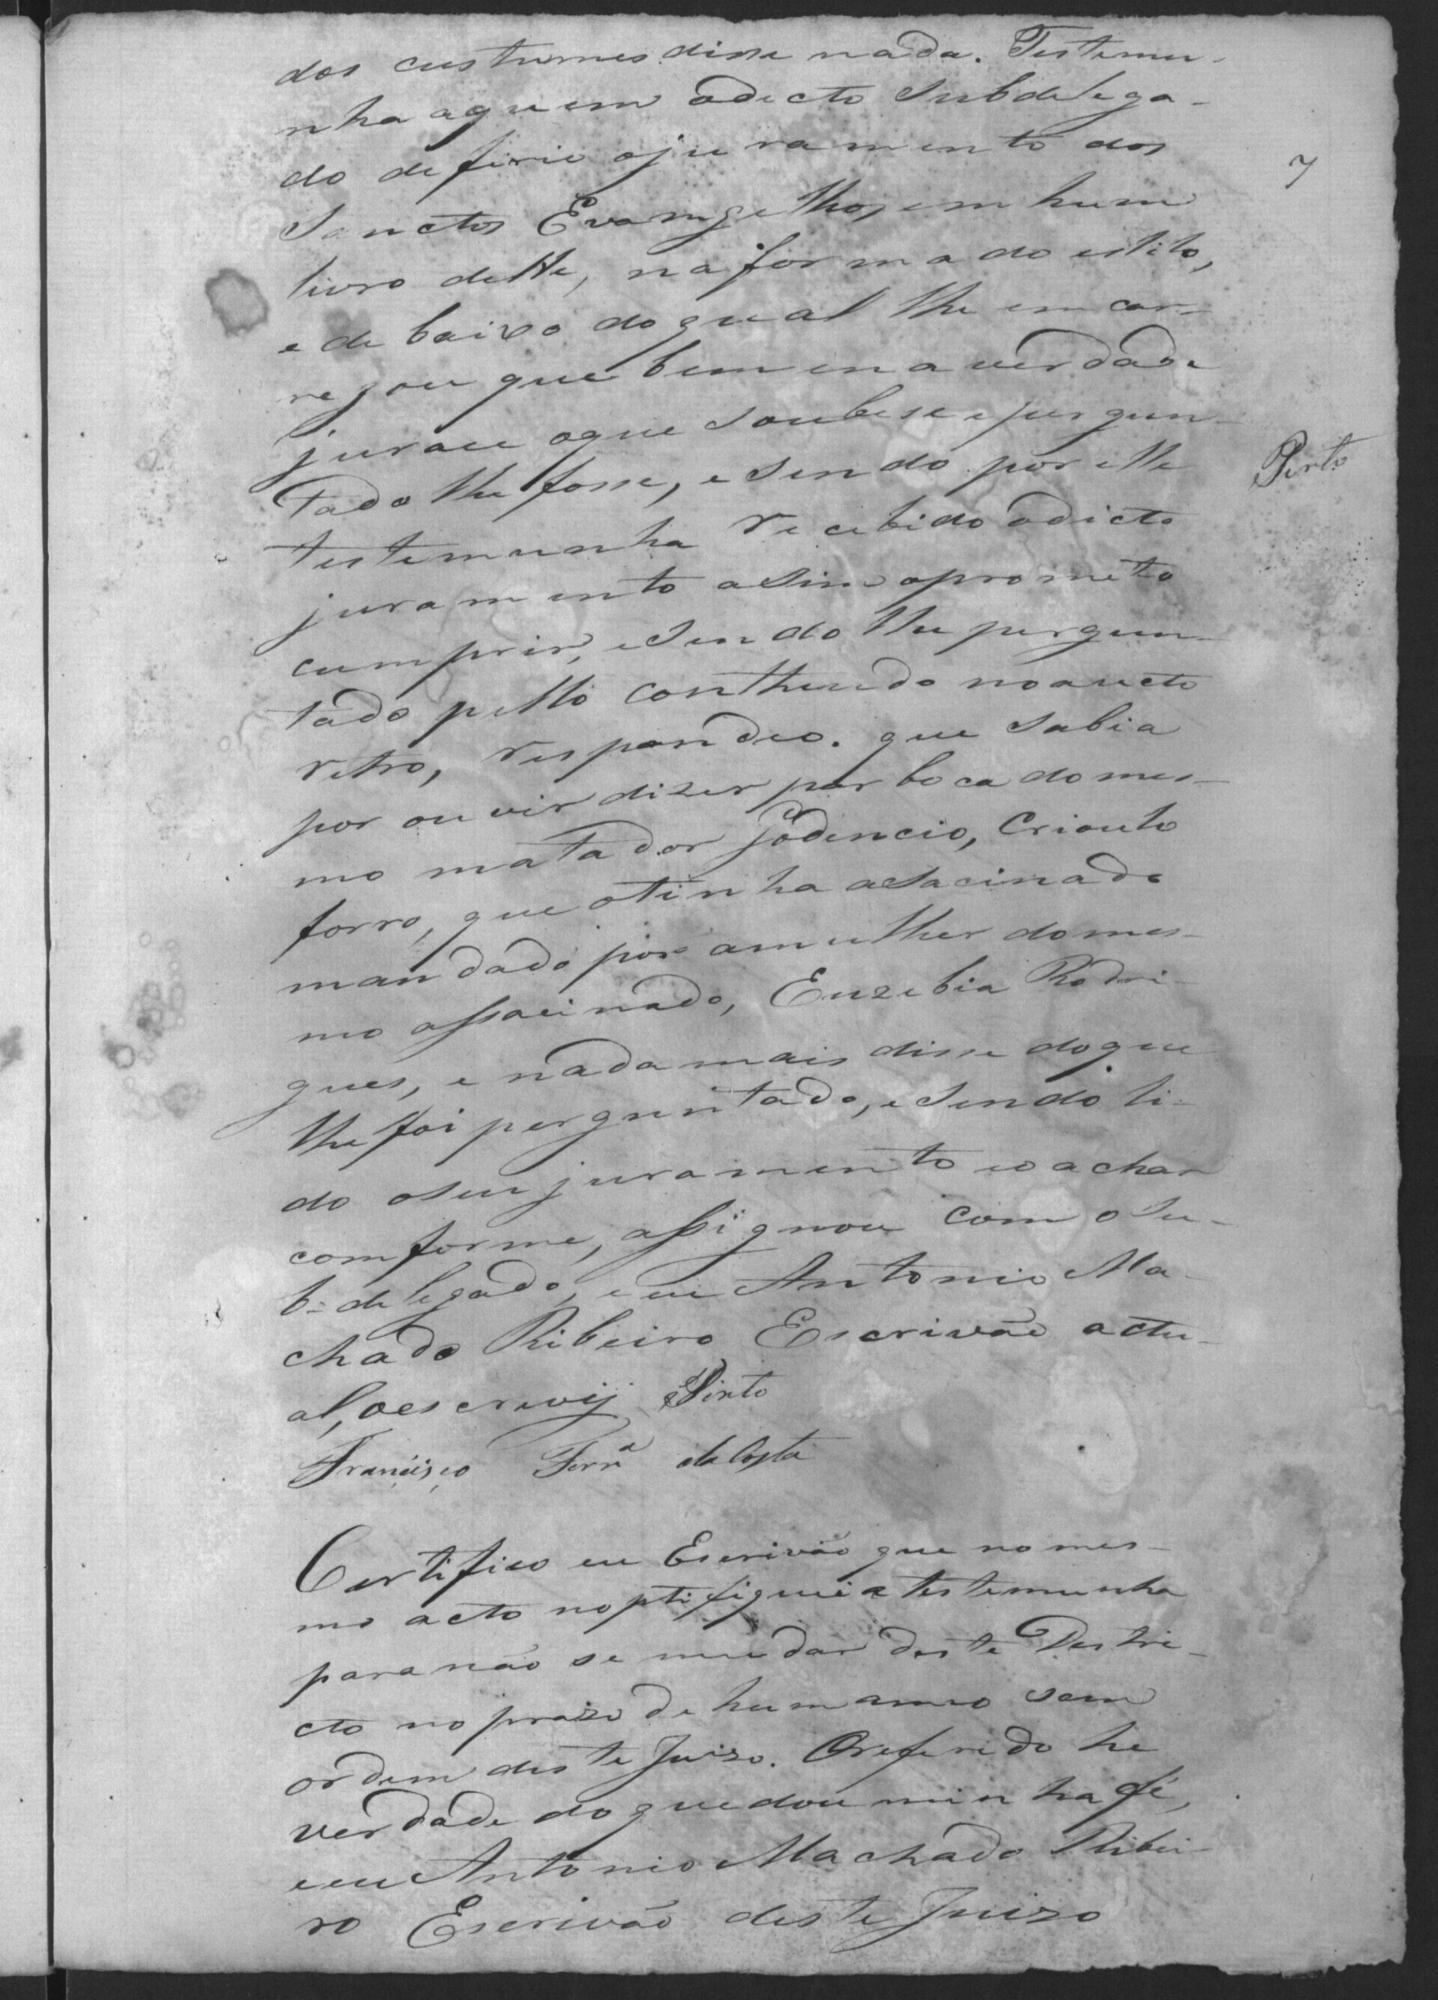 dos custumes disse nada. Testemu-
nha aquem odicto Subdelega-
do deferio ojuramento dos
7
Sanctos Evangelhos em hum
livro delle, na forma do estilo,
e debaixo do qual lhe encar-
regou que bem e na verdade
jurace oque soubese e pergun-
Pinto
tado lhe fosse, e sendo por elle
testemunha recebido odicto
juramento asim oprometeo
cumprir, e sendo lhe pergun-
tado pello contheudo no aucto
retro, respondeo. que sabia
por ouvir dizer por boca do mes-
mo matador Godencio, Crioulo
forro, que otinha asacinado
mandado por amulher do mes-
mo assacinado, Euzebia Rodri-
gues, e nada mais disse do que
lhe foi perguntado, e sendo li-
do oseu juramento eo achar
comforme, assignou com o Su-
b-delegado, e eu Antonio Ma-
chado Ribeiro Escrivão actu-
al, oescrevij Pinto
Francisco Ferrª da Costa
Certifico eu Escrivão que no mes-
mo acto noptifiquei a testemunha
para não se mudar deste Destri-
cto no prazo de hum anno sem
ordem deste Juizo. Oreferido he
verdade do que dou minha fé,
e eu Antonio Machado Ribei-
ro Escrivão deste Juizo